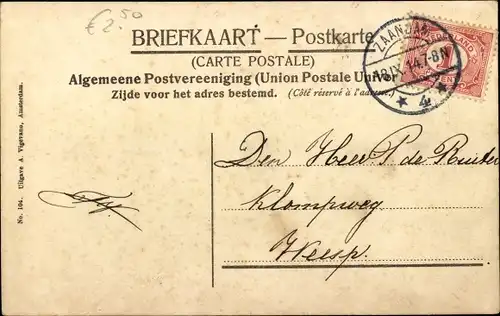 € 2.50
BRIEFKAART — Postkarte
(CARTE POSTALE)
Algemeene Postvereeniging (Union Postale Univ.)
Zijde voor het adres bestemd. (Côté réservé à l'adresse.)
ZAANDAM
14.7-8N
4
NEDERLAND
No. 104. Uitgave A. Vigevano, Amsterdam.
Den Heer P de Ruiter
Klompweg
Weesp.